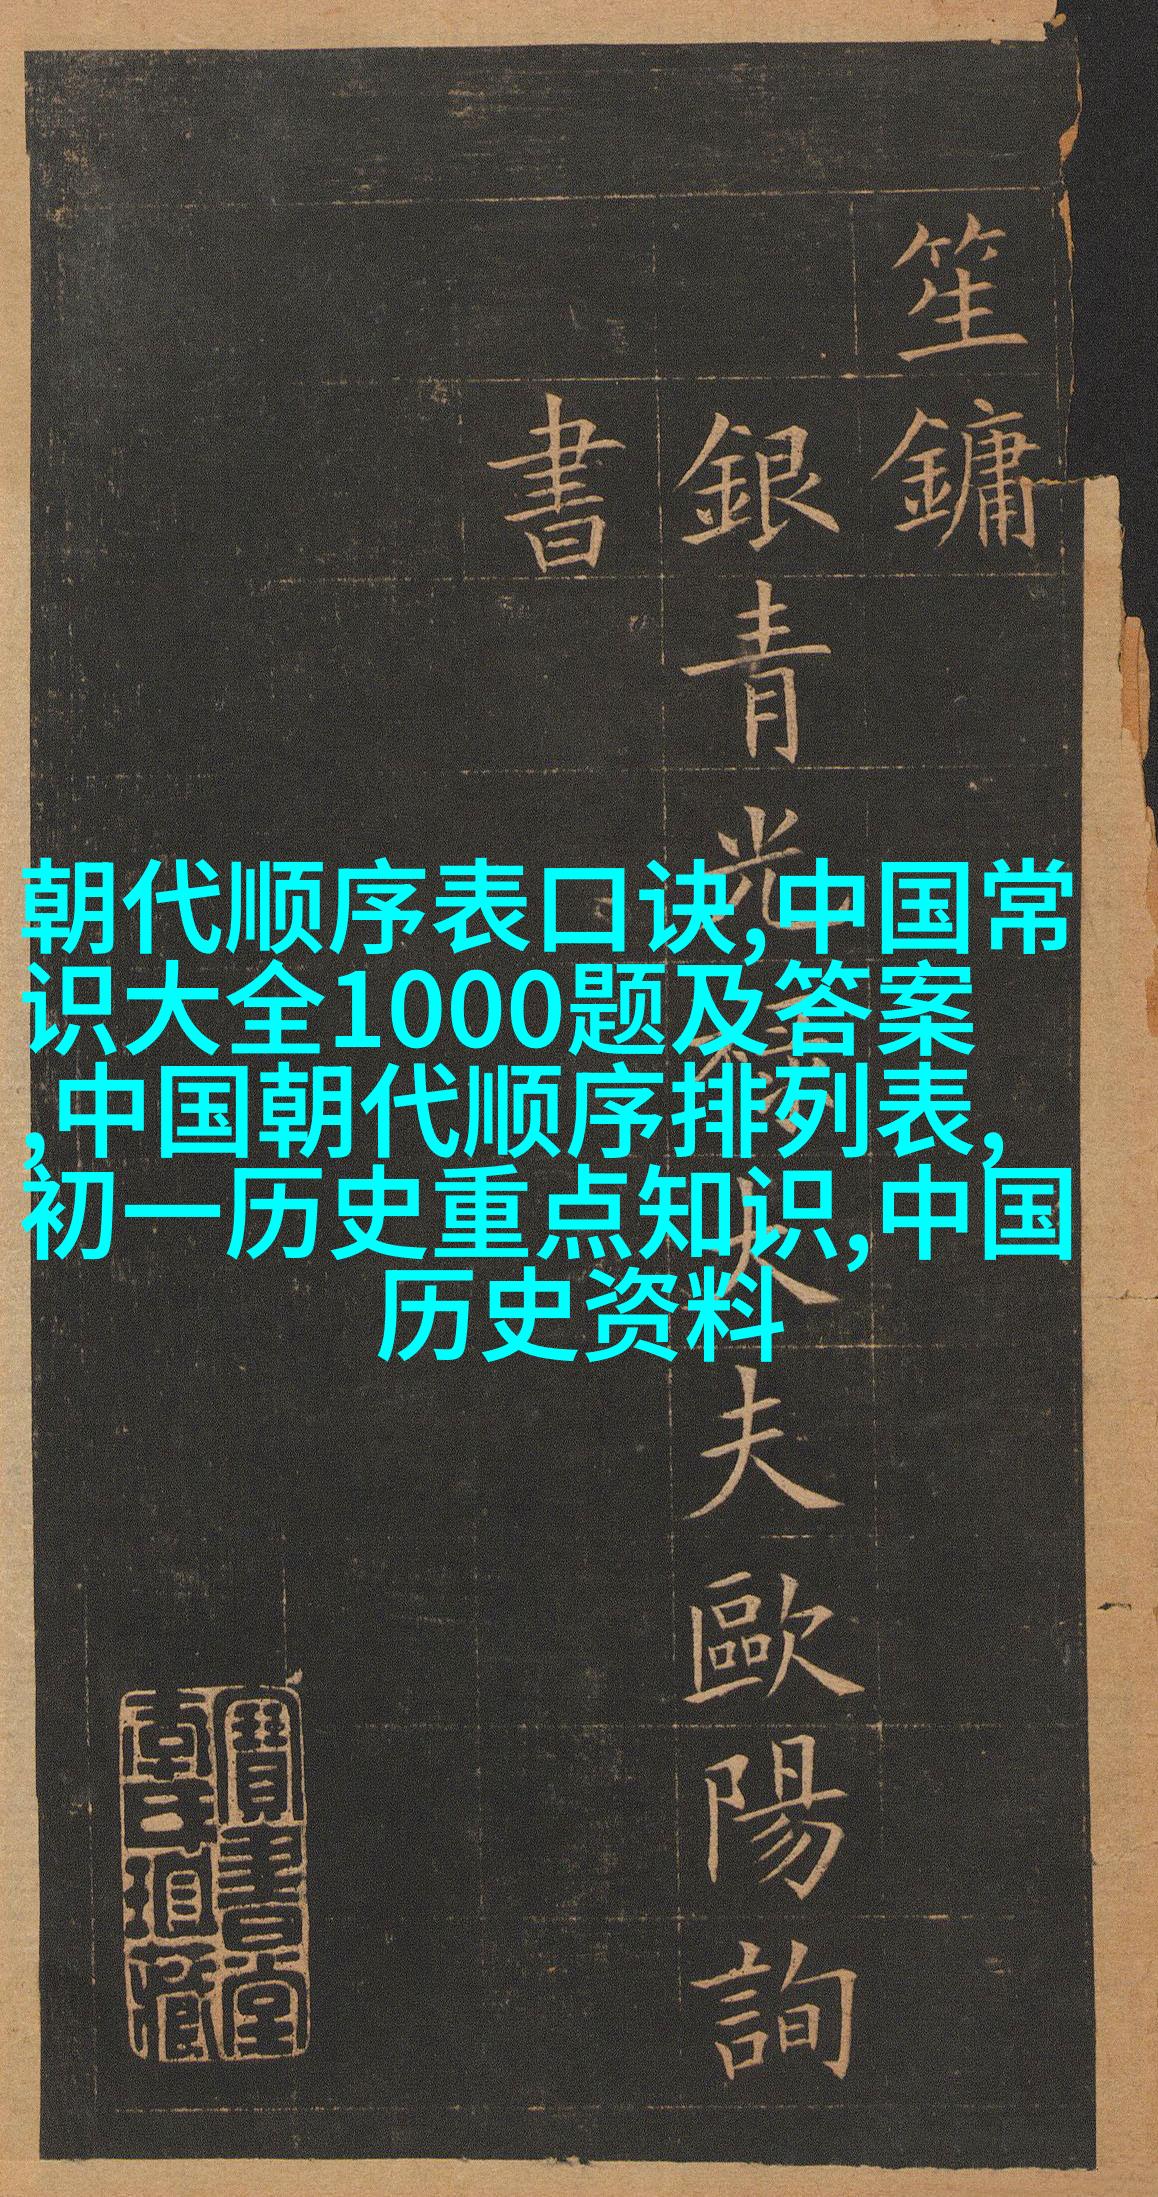 朝代顺序表口诀,中国常
识大全1000题及答案
,中国朝代顺序排列表,
初一历史重点知识,中国
历史资料
笙鏞
銀青光祿大夫歐陽詢
書